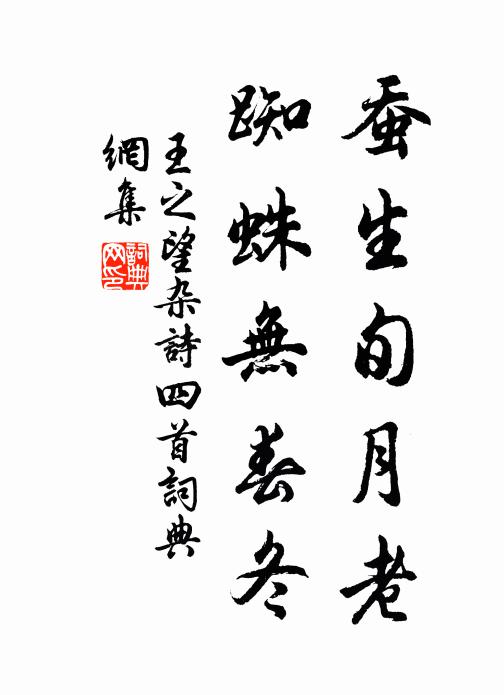 蚕生旬月老
蜘蛛無春冬
王之望杂詩四首詞典
網集
詞典
网印